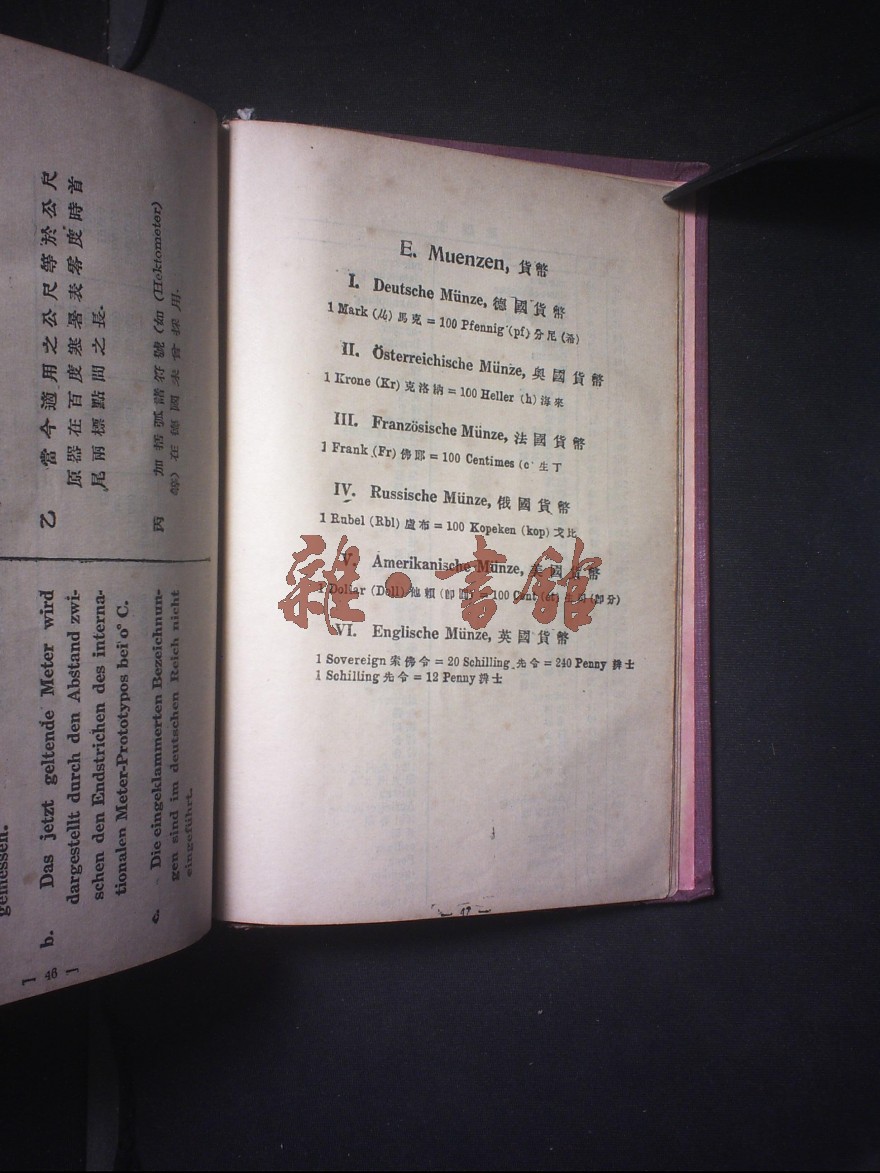 乙 當今適用之公尺等於公尺
原器在百度寒暑表零度時首
尾兩標點間之長.
丙 加括弧諸符號(如 (Hektometer)
等)在德國未曾採用.
gemessen.
b. Das jetzt geltende Meter wird
dargestellt durch den Abstand zwi-
schen den Endstrichen des interna-
tionalen Meter-Prototypos bei 0° C.
c. Die eingeklammerten Bezeichnun-
gen sind im deutschen Reich nicht
eingeführt.
46
E. Muenzen, 貨幣
I. Deutsche Münze, 德國貨幣
1 Mark (ℳ) 馬克 = 100 Pfennig (pf) 分尼
II. Österreichische Münze, 奥國貨幣
1 Krone (Kr) 克洛納 = 100 Heller (h) 海來
III. Französische Münze, 法國貨幣
1 Frank (Fr) 佛郎 = 100 Centimes (c 生丁
IV. Russische Münze, 俄國貨幣
1 Rubel (Rbl) 盧布 = 100 Kopeken (kop) 戈比
V. Amerikanische Münze, 美國貨幣
1 Dollar (Doll) = 100 Cent (ct) (即分)
VI. Englische Münze, 英國貨幣
1 Sovereign 索佛令 = 20 Schilling 先令 = 240 Penny 辨士
1 Schilling 先令 = 12 Penny 辨士
47
雜·書館